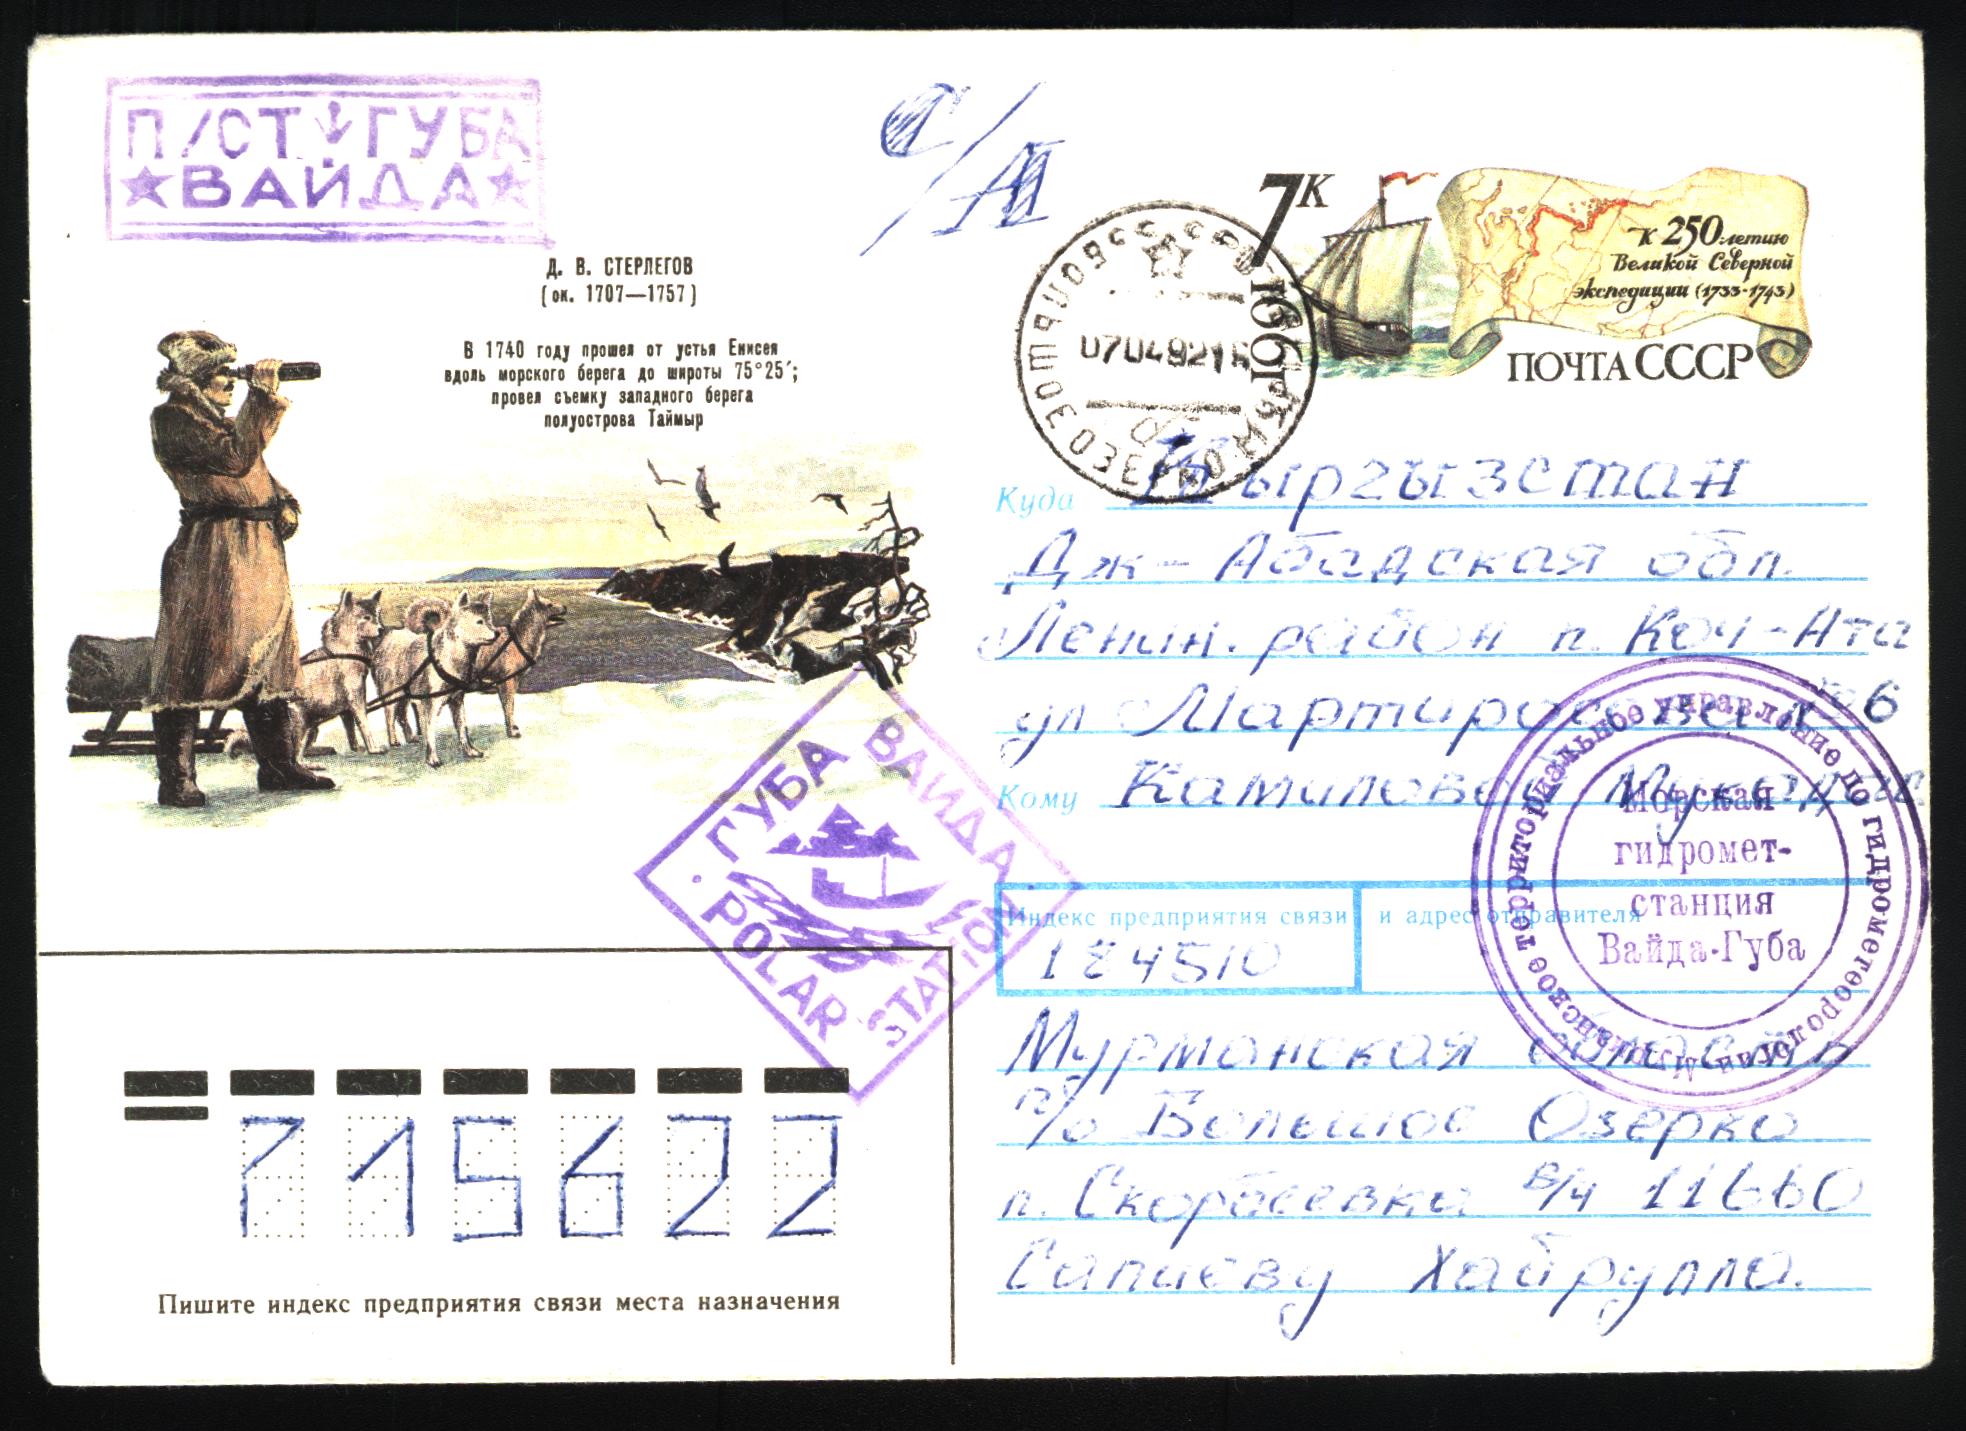 П/СТ ГУБА
ВАЙДА
С/А
Д. В. СТЕРЛЕГОВ
(ок. 1707—1757)
В 1740 году прошел от устья Енисея
вдоль морского берега до широты 75°25′;
провел съемку западного берега
полуострова Таймыр
7 К
1991
К 250-летию
Великой Северной
экспедиции (1733-1743)
ПОЧТА СССР
07049215
Куда Кыргызстан
Дж-Абадская обл.
Ленин. район п. Коч-Ата
ул Мартиросова № 6
Кому Камилова
ГУБА ВАЙДА
POLAR STATION
Мурманское территориальное управление по гидрометеорологии
Морская
гидромет-
станция
Вайда-Губа
Индекс предприятия связи и адрес отправителя
184510
Мурманская область
п/о Большое Озерко
п. Скорбеевка в/ч 11660
Сапиеву Хайрулла.
715622
Пишите индекс предприятия связи места назначения